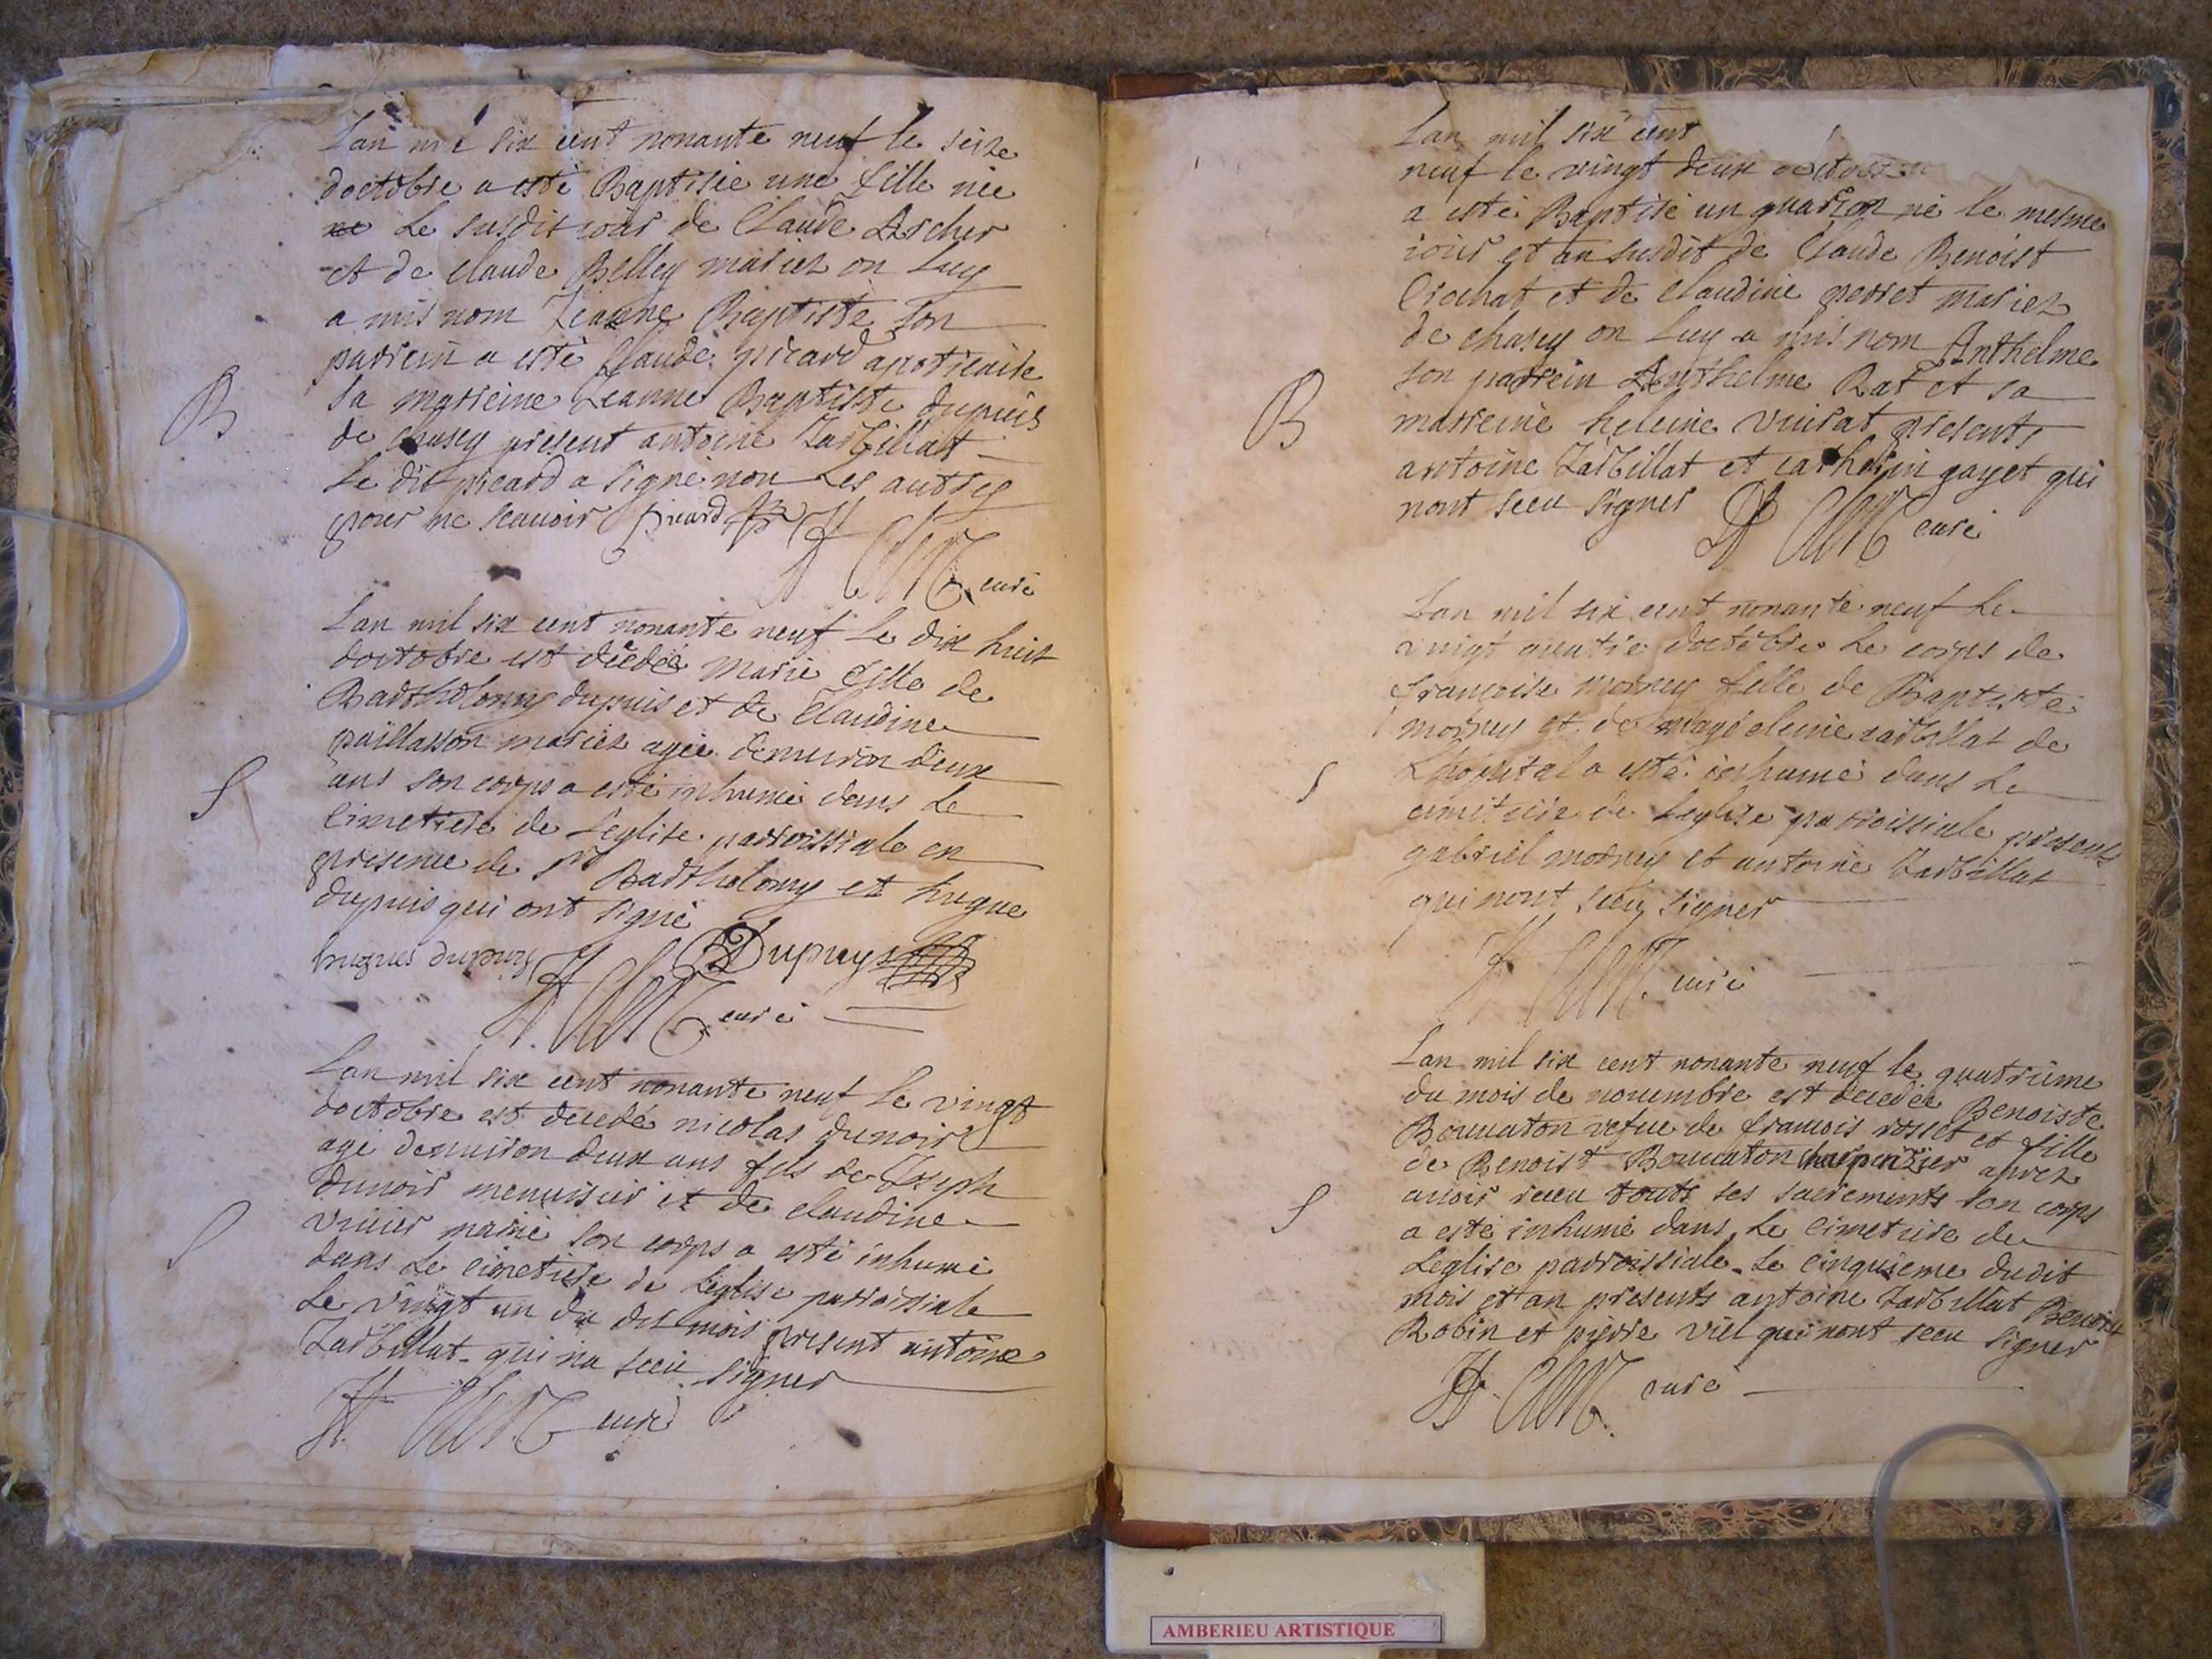 Lan mil six cent nonante neuf le seize
doctobre a esté Baptisée une fille née
le susdit iour de Claude Archer
et de claude Belley mariez on luy
a mis nom Jeanne Baptiste son
parrein a esté Claude picard apoticaire
sa marreine Jeanne Baptiste dupuis
B
de chasey présent antoine Jarbillat
le dit picard a signé non les autres
pour ne scauoir picard
curé
Lan mil six cent nonante neuf le dix huit
doctobre est décédée marie fille de
Bartholomy dupuis et de Claudine
paillasson mariez agée denuiron deux
S
ans son corps a esté inhumé dans le
cimetiere de leglise parroissiale en
presence de Sr Bartholomy et hugue
dupuis qui ont signé
hugues dupuys Dupuys
curé
Lan mil six cent nonante neuf le vingt
doctobre est decedé nicolas dunoir
agé denuiron deux ans fils de Joseph
dunoir menuisier et de claudine
S
mariè son corps a esté inhumé
dans le cimetiere de leglise parroissiale
le vingt un du dit mois présent antoine
Jarbillat qui na sceu signer
curé
Lan mil six cent
neuf le vingt deux octobre
a esté Baptisé un guarson né le mesme
iour et an susdit de Claude Benoist
Crochat et de claudine perret mariez
de chasey on luy a mis nom Anthelme
son parrein Anthelme Rat et sa
B
marreine heleine presents
antoine Jarbillat et catherin gayet qui
nont sceu signer
curé
Lan mil six cent nonante neuf le
vingt quatre doctobre le corps de
francoise morney fille de Baptiste
morney et de magdeleine Jarbillat de
S
Lhopital a esté inhumé dans le
cimitiere de leglise parroissiale presents
gabriel morney et antoine Jarbillat
qui nont sceu signer
curé
Lan mil six cent nonante neuf le quatrième
du mois de nouembre est decedée Benoiste
Bouuaton vefue de francois rosset et fille
de Benoist Bouuaton charpentier aprez
S
auoir receu touts ses sacrements son corps
a esté inhumé dans le cimetiere de
Leglise parroissiale le cinquieme dudit
mois et an presents antoine Jarbillat Benoist
Robin et pierre viel qui nont sceu signer
curé
AMBERIEU ARTISTIQUE